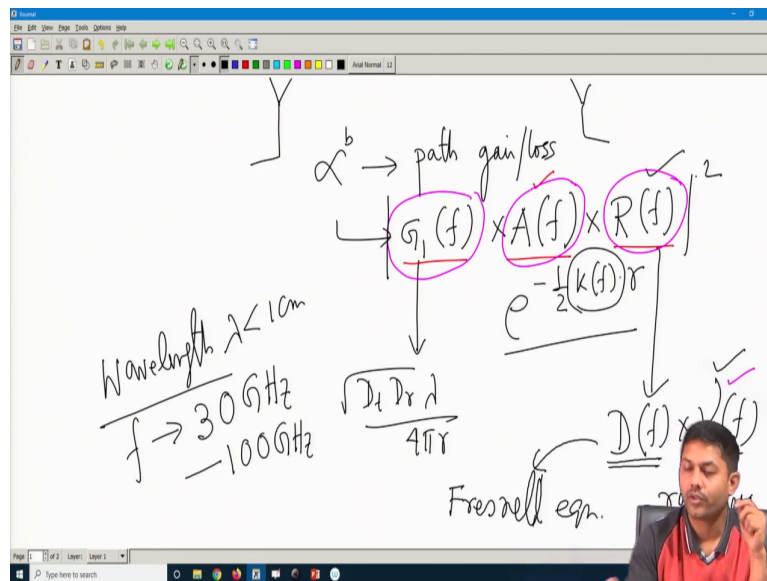 Xournal
File Edit View Page Tools Options Help
Arial Normal 12
α^b → path gain/loss
|G₁(f) × A(f) × R(f)|²
e^{-1/2 K(f)·r}
Wavelength λ<1cm
f → 30GHz
—100GHz
√Dt Dr λ
4πr
D(f) × V(f)
Fresnell eqn.
Page 1 of 2 Layer: Layer 1
Type here to search